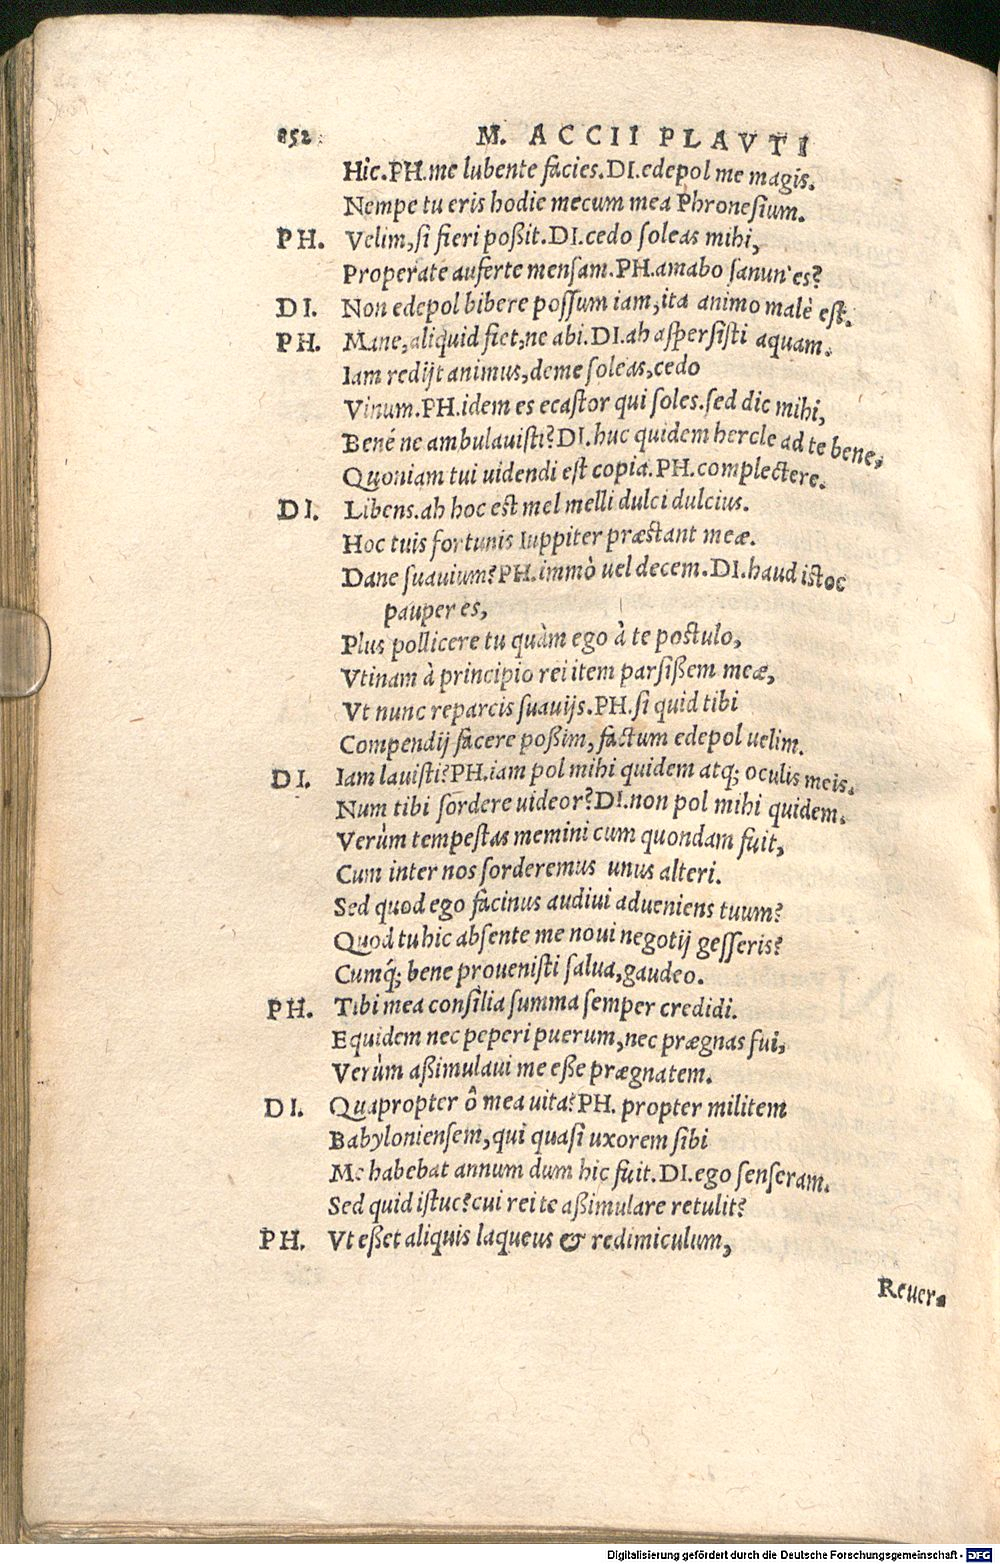 852
M. ACCII PLAVTI
Hic.PH.me lubente facies.DI.edepol me magis.
Nempe tu eris hodie mecum mea Phronesium.
PH. Velim,si fieri poßit.DI.cedo soleas mihi,
Properate auferte mensam.PH.amabo sanun'es?
DI. Non edepol bibere possum iam,ita animo malè est.
PH. Mane,aliquid fiet,ne abi.DI.ah aspersisti aquam.
Iam redijt animus,deme soleas,cedo
Vinum.PH.idem es ecastor qui soles.sed dic mihi,
Bené ne ambulauisti?DI.huc quidem hercle ad te bene,
Quoniam tui uidendi est copia.PH.complectere.
DI. Libens.ah hoc est mel melli dulci dulcius.
Hoc tuis fortunis Iuppiter præstant meæ.
Dane suauium?PH.immò uel decem.DI.haud istoc
pauper es,
Plus pollicere tu quàm ego à te postulo,
Vtinam à principio rei item parsißem meæ,
Vt nunc reparcis suauijs.PH.si quid tibi
Compendij facere poßim,factum edepol uelim.
DI. Iam lauisti?PH.iam pol mihi quidem atq; oculis meis.
Num tibi sordere uideor?DI.non pol mihi quidem.
Verùm tempestas memini cum quondam fuit,
Cum inter nos sorderemus unus alteri.
Sed quod ego facinus audiui adueniens tuum?
Quod tu hic absente me noui negotij gesseris?
Cumq́; bene prouenisti salua,gaudeo.
PH. Tibi mea consilia summa semper credidi.
Equidem nec peperi puerum,nec prægnas fui,
Verùm aßimulaui me eße prægnatem.
DI. Quapropter ô mea uita?PH. propter militem
Babyloniensem,qui quasi uxorem sibi
Me habebat annum dum hic fuit.DI.ego senseram.
Sed quid istuc?cui rei te aßimulare retulit?
PH. Vt eßet aliquis laqueus & redimiculum,
Reuer-
Digitalisierung gefördert durch die Deutsche Forschungsgemeinschaft - DFG